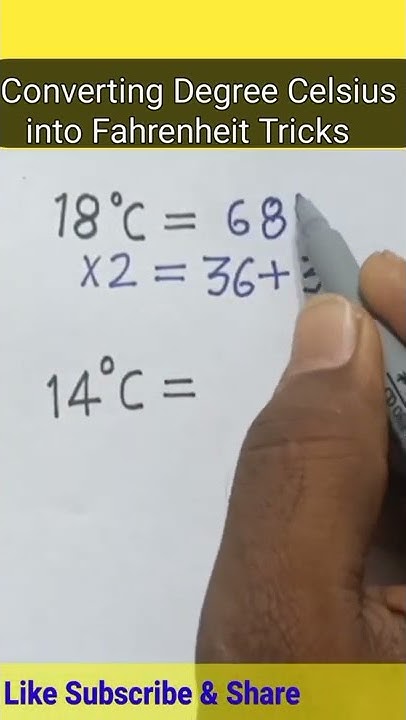 Converting Degree Celsius
into Fahrenheit Tricks
18°C = 68
×2 = 36+
14°C =
Like Subscribe & Share